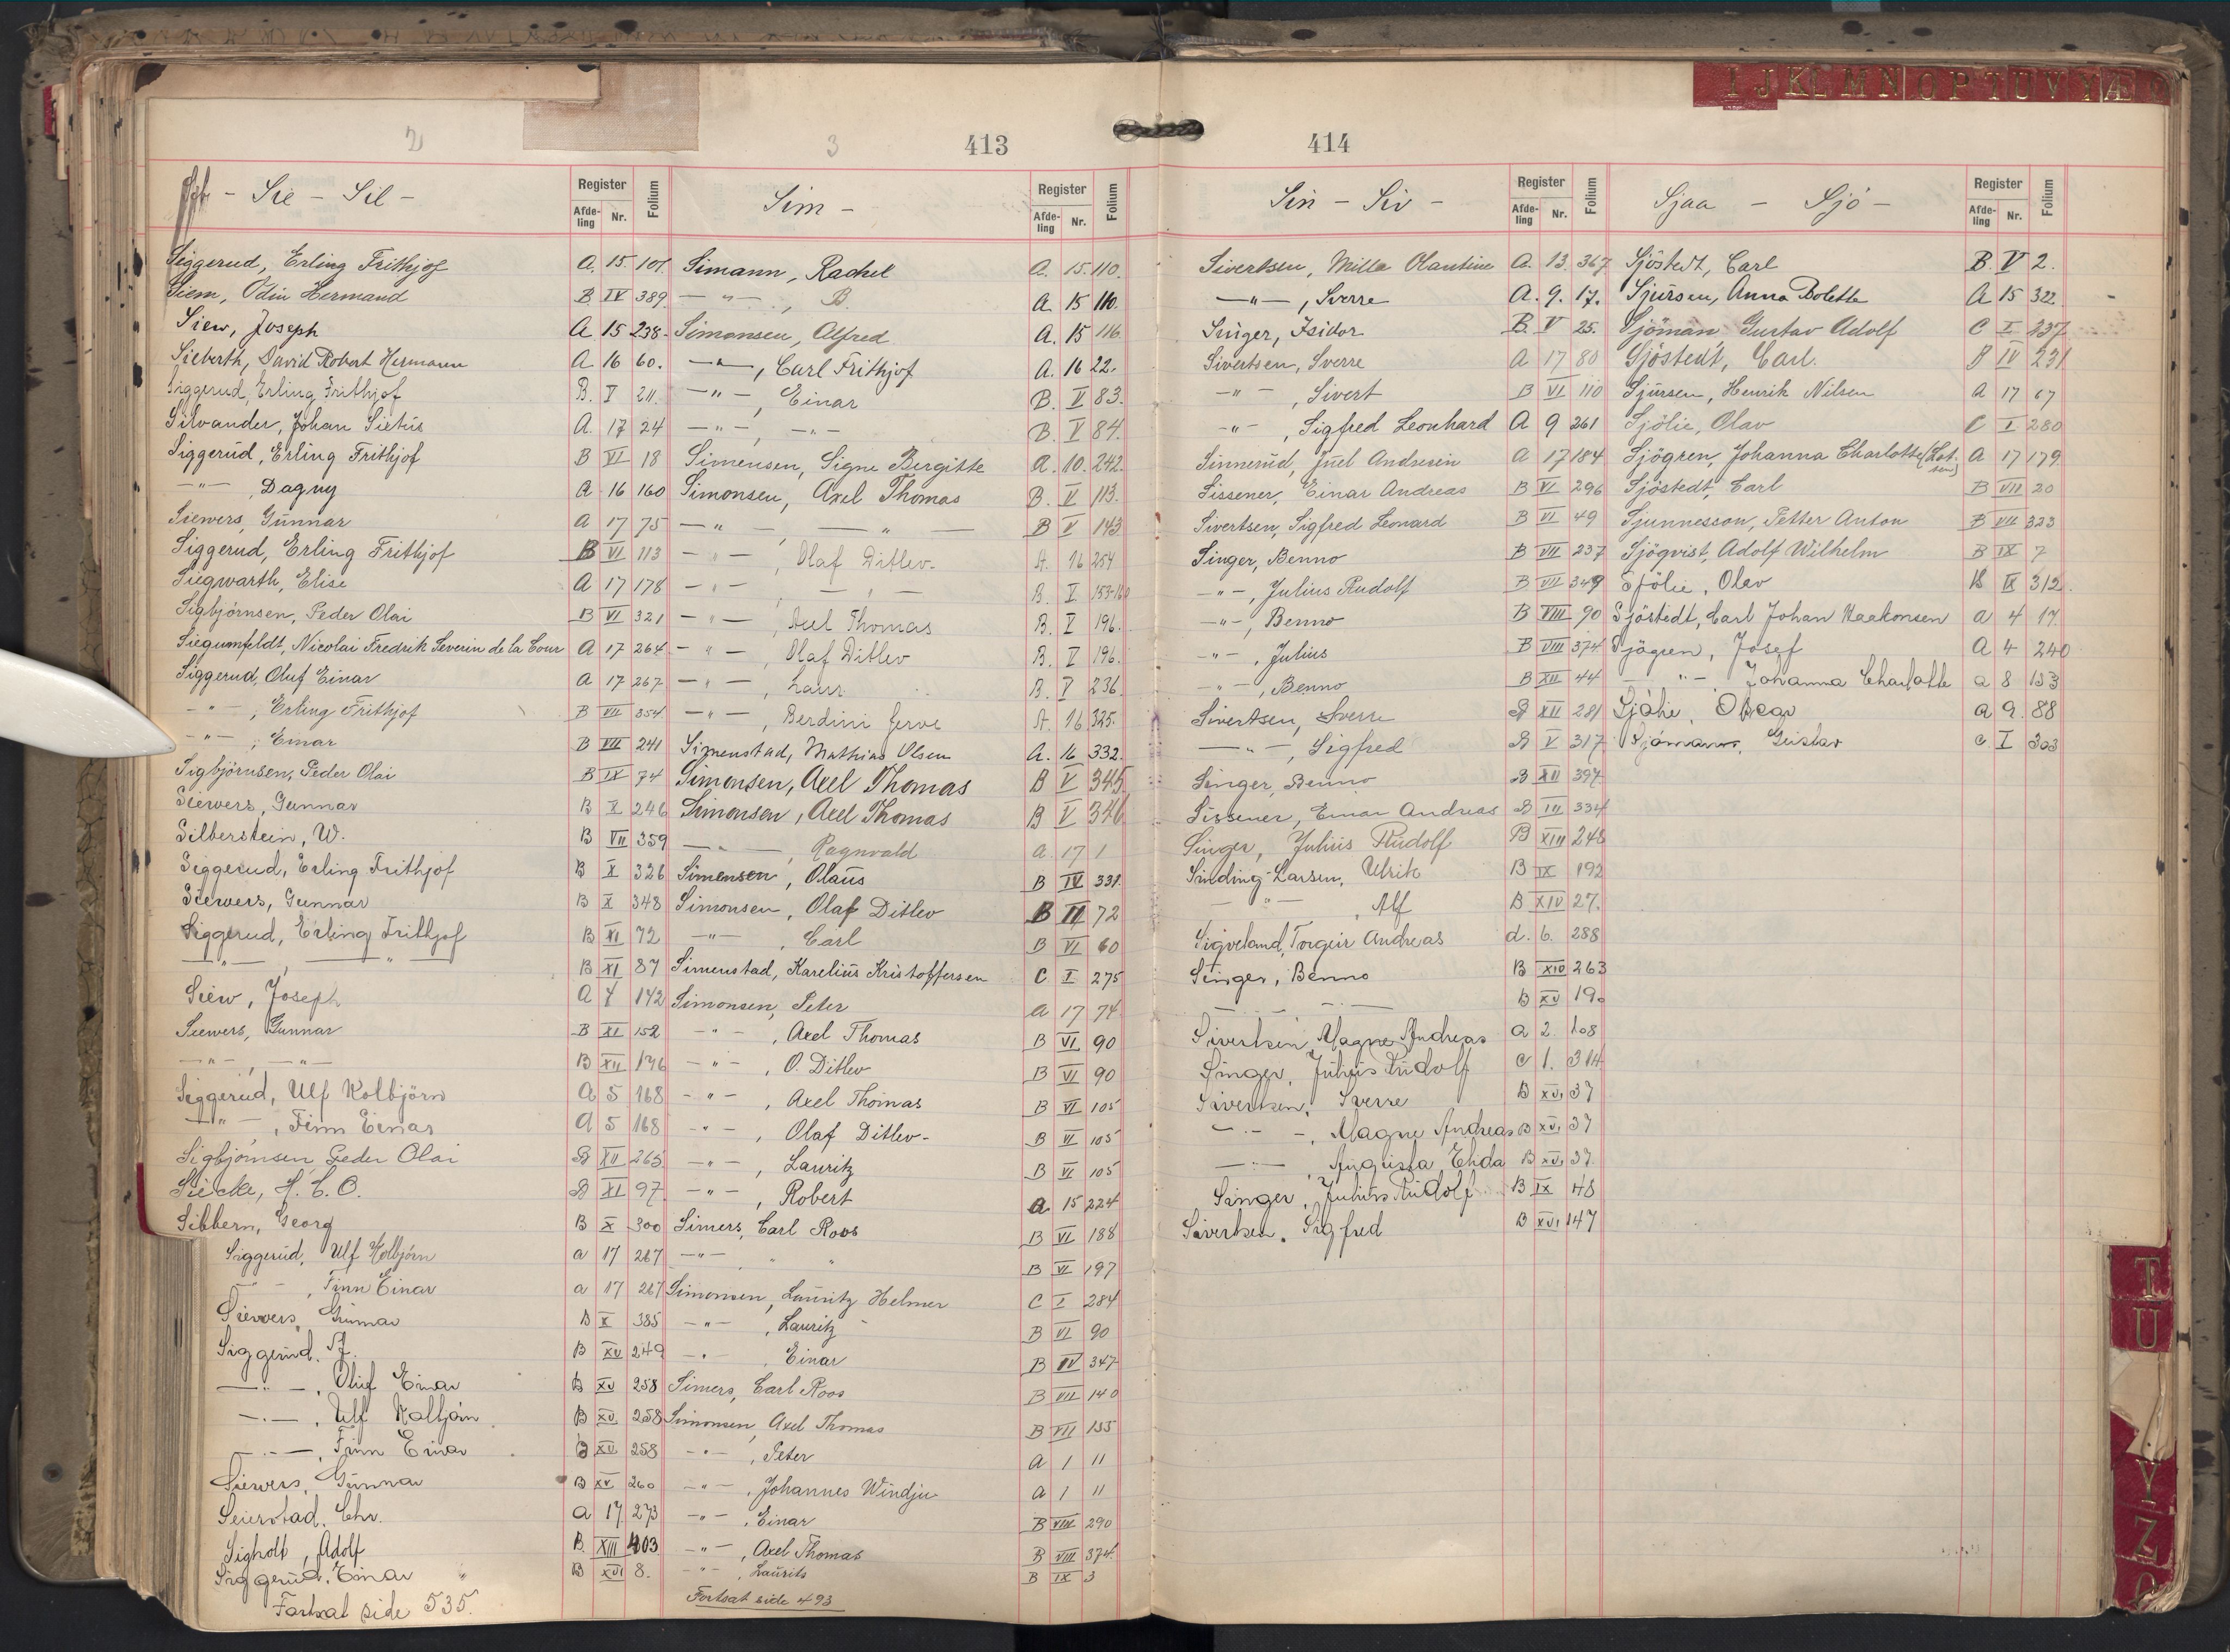 I J KL M N O P T U V Y Æ
2
3
413
- Sie - Sil -
Register
Afde-ling Nr. Folium
Siggerud, Erling Frithjof A. 15. 107.
Siem, Odin Hermand B IV 389
Siew, Joseph A 15 238.
Sieberth, David Robert Hermann A. 16 60.
Siggerud, Erling Frithjof B. V 211.
Silvander, Johan Sixtus A. 17 24
Siggerud, Erling Frithjof B VI 18
-"- , Dagny A 16 160
Siewers, Gunnar A 17 75
Siggerud, Erling Frithjof B VI 113
Siegwarth, Elise A 17 178
Sigbjörnsen, Peder Olai B VI 321
Siegumfeldt, Nicolai Fredrik Severin de la Cour A 17 264
Siggerud, Oluf Einar A 17 267
-"- , Erling Frithjof B VII 354
-"- , Einar B VIII 241
Sigbjörnsen, Peder Olai B IX 74
Siewers, Gunnar B X 246
Silberstein, W. B VII 359
Siggerud, Erling Frithjof B X 326
Siewers, Gunnar B X 348
Siggerud, Erling Frithjof B XI 72
-"- , -"- B XI 87
Siew, Joseph A 4 142
Siewers, Gunnar B XI 152
-"- , -"- B XII 176
Siggerud, Ulf Kolbjörn A 5 168
-"- , Finn Einar A 5 168
Sigbjörnsen Peder Olai B XII 265
Siecke, H. C. O. B XI 97
Sibbern, Georg B X 300
Siggerud, Ulf Kolbjörn a 17 267
-"- , Finn Einar a 17 267
Siewers, Gunnar B X 385
Siggerud, B XV 249
-"- , Oluf Einar B XV 258
-"- , Ulf Kolbjörn B XV 258
-"- , Finn Einar B XV 258
Siewers, Gunnar B XV 260
Seierstad, Chr. a 17 273
Sigholt, Adolf B. XIII 403
Siggerud, Einar B XVI 8.
Fortsat side 535.
Sim -
Register
Afde-ling Nr. Folium
Simann, Rachel A. 15. 110.
-"- , B. A 15 110.
Simonsen, Alfred A. 15 116.
-"- , Carl Frithjof A. 16 22.
-"- , Einar B. V 83.
-"- , -"- B. V 84.
Simensen, Signe Bergitte A. 10. 242.
Simonsen, Axel Thomas B. V 113.
-"- , -"- B V 143
-"- , Olaf Ditlev. A. 16 254
-"- , -"- B. V 153-160
-"- , Axel Thomas B. V 196.
-"- , Olaf Ditlev B. V 196.
-"- , Laur. B. V 236.
-"- , Berdini Jerve A. 16 325.
Simenstad, Mathias Olsen A. 16 332.
Simonsen, Axel Thomas B V 345
Simonsen, Axel Thomas B V 346
-"- , Ragnvald a 17 1
Simensen, Olaus B IV 331
Simonsen, Olaf Ditlev B II 72
-"- , Carl B VI 60
Simenstad, Karelius Kristoffersen C I 275
Simonsen, Peter a 17 74
-"- , Axel Thomas B VI 90
-"- , O. Ditlev B VI 90
-"- , Axel Thomas B VI 105
-"- , Olaf Ditlev- B VI 105
-"- , Lauritz B VI 105
-"- , Robert a 15 224
Simers, Carl Roos B VI 188
-"- " " B VI 197
Simonsen, Lauritz Helmer C I 284
-"- , Lauritz B VI 90
-"- , Einar B IV 347
Simers, Carl Roos B VII 140
Simonsen, Axel Thomas B VII 155
-"- , Peter A 1 11
-"- , Johannes Windju a 1 11
-"- , Einar B VIII 290
-"- , Axel Thomas B VIII 374.
-"- , Laurits B IX 3
Fortsat side 493
414
Sin - Siv -
Register
Afde-ling Nr. Folium
Sivertsen, Milla Olantine A. 13. 367
-"- , Sverre A. 9. 17.
Singer, Isidor B. V 25.
Sivertsen, Sverre A 17 80
-"- , Sivert B VI 110
-"- , Sigfred Leonhard A 9 261
Sinnerud, Juel Andresen A 17 184
Sissener, Einar Andreas B VI 296
Sivertsen, Sigfred Leonard B VI 49
Singer, Benno B VII 237
-"- , Julius Rudolf B VII 349
-"- , Benno B VIII 90
-"- , Julius B VIII 374
-"- , Benno B XII 44
Sivertsen, Sverre B XII 281
-"- , Sigfred B V 317
Singer, Benno B XII 397
Sissener, Einar Andreas B III 334
Singer, Julius Rudolf B XIII 248
Sinding-Larsen, Ulrik B IX 192
-"- , Alf B XIV 27.
Sigveland, Torgeir Andreas d. 6. 288
Singer, Benno B XIV 263
-"- -"- B XV 190
Sivertsen, Magne Andreas a 2 108
Singer, Julius Rudolf c 1. 314
Sivertsen, Sverre B XVI 37
-"- , Magne Andreas B XVI 37
-"- , Augusta Enda B XVI 37
Singer, Julius Rudolf B IX 48
Sivertsen, Sigfred B XVI 147
Sjaa - Sjö -
Register
Afde-ling Nr. Folium
Sjöstedt, Carl B. V 2.
Sjursen, Anna Bolette A 15 322.
Sjöman Gustav Adolf C I 237
Sjöstedt, Carl. B IV 231
Sjursen, Henrik Nilsen A 17 67
Sjölie, Olav C I 280
Sjögren, Johanna Charlotte A 17 179
Sjöstedt, Carl B VII 20
Sjunnesson, Petter Anton B VII 323
Sjöqvist, Adolf Wilhelm B IX 7
Sjölie, Olav B IX 312
Sjöstedt, Carl Johan Haakonsen a 4 17
Sjögren, Josef A 4 240
-"- , Johanna Charlotte a 8 153
Sjölie, Oskar a 9. 88
Sjömann, Gustav c. I 303
T
U
Y
Z